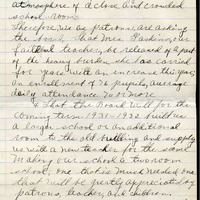 atmosphere of a close and crowded
school room.
Therefore, we as patrons, are asking
the board, that Mrs. Parkins, our
faithful teacher, be released of a part
of the heavy burden she has carried
for years with an increase this year,
an enrollment of 76 pupils, average
daily attendance 70 or more
& That the Board will for the
coming term 1931-1932 built us
a larger school or an additional
room to the old building and supply
us with a new teacher for the same
making our school a two room
school, one that is much needed one
that will be greatly appreciated by
patrons, teacher, and children.